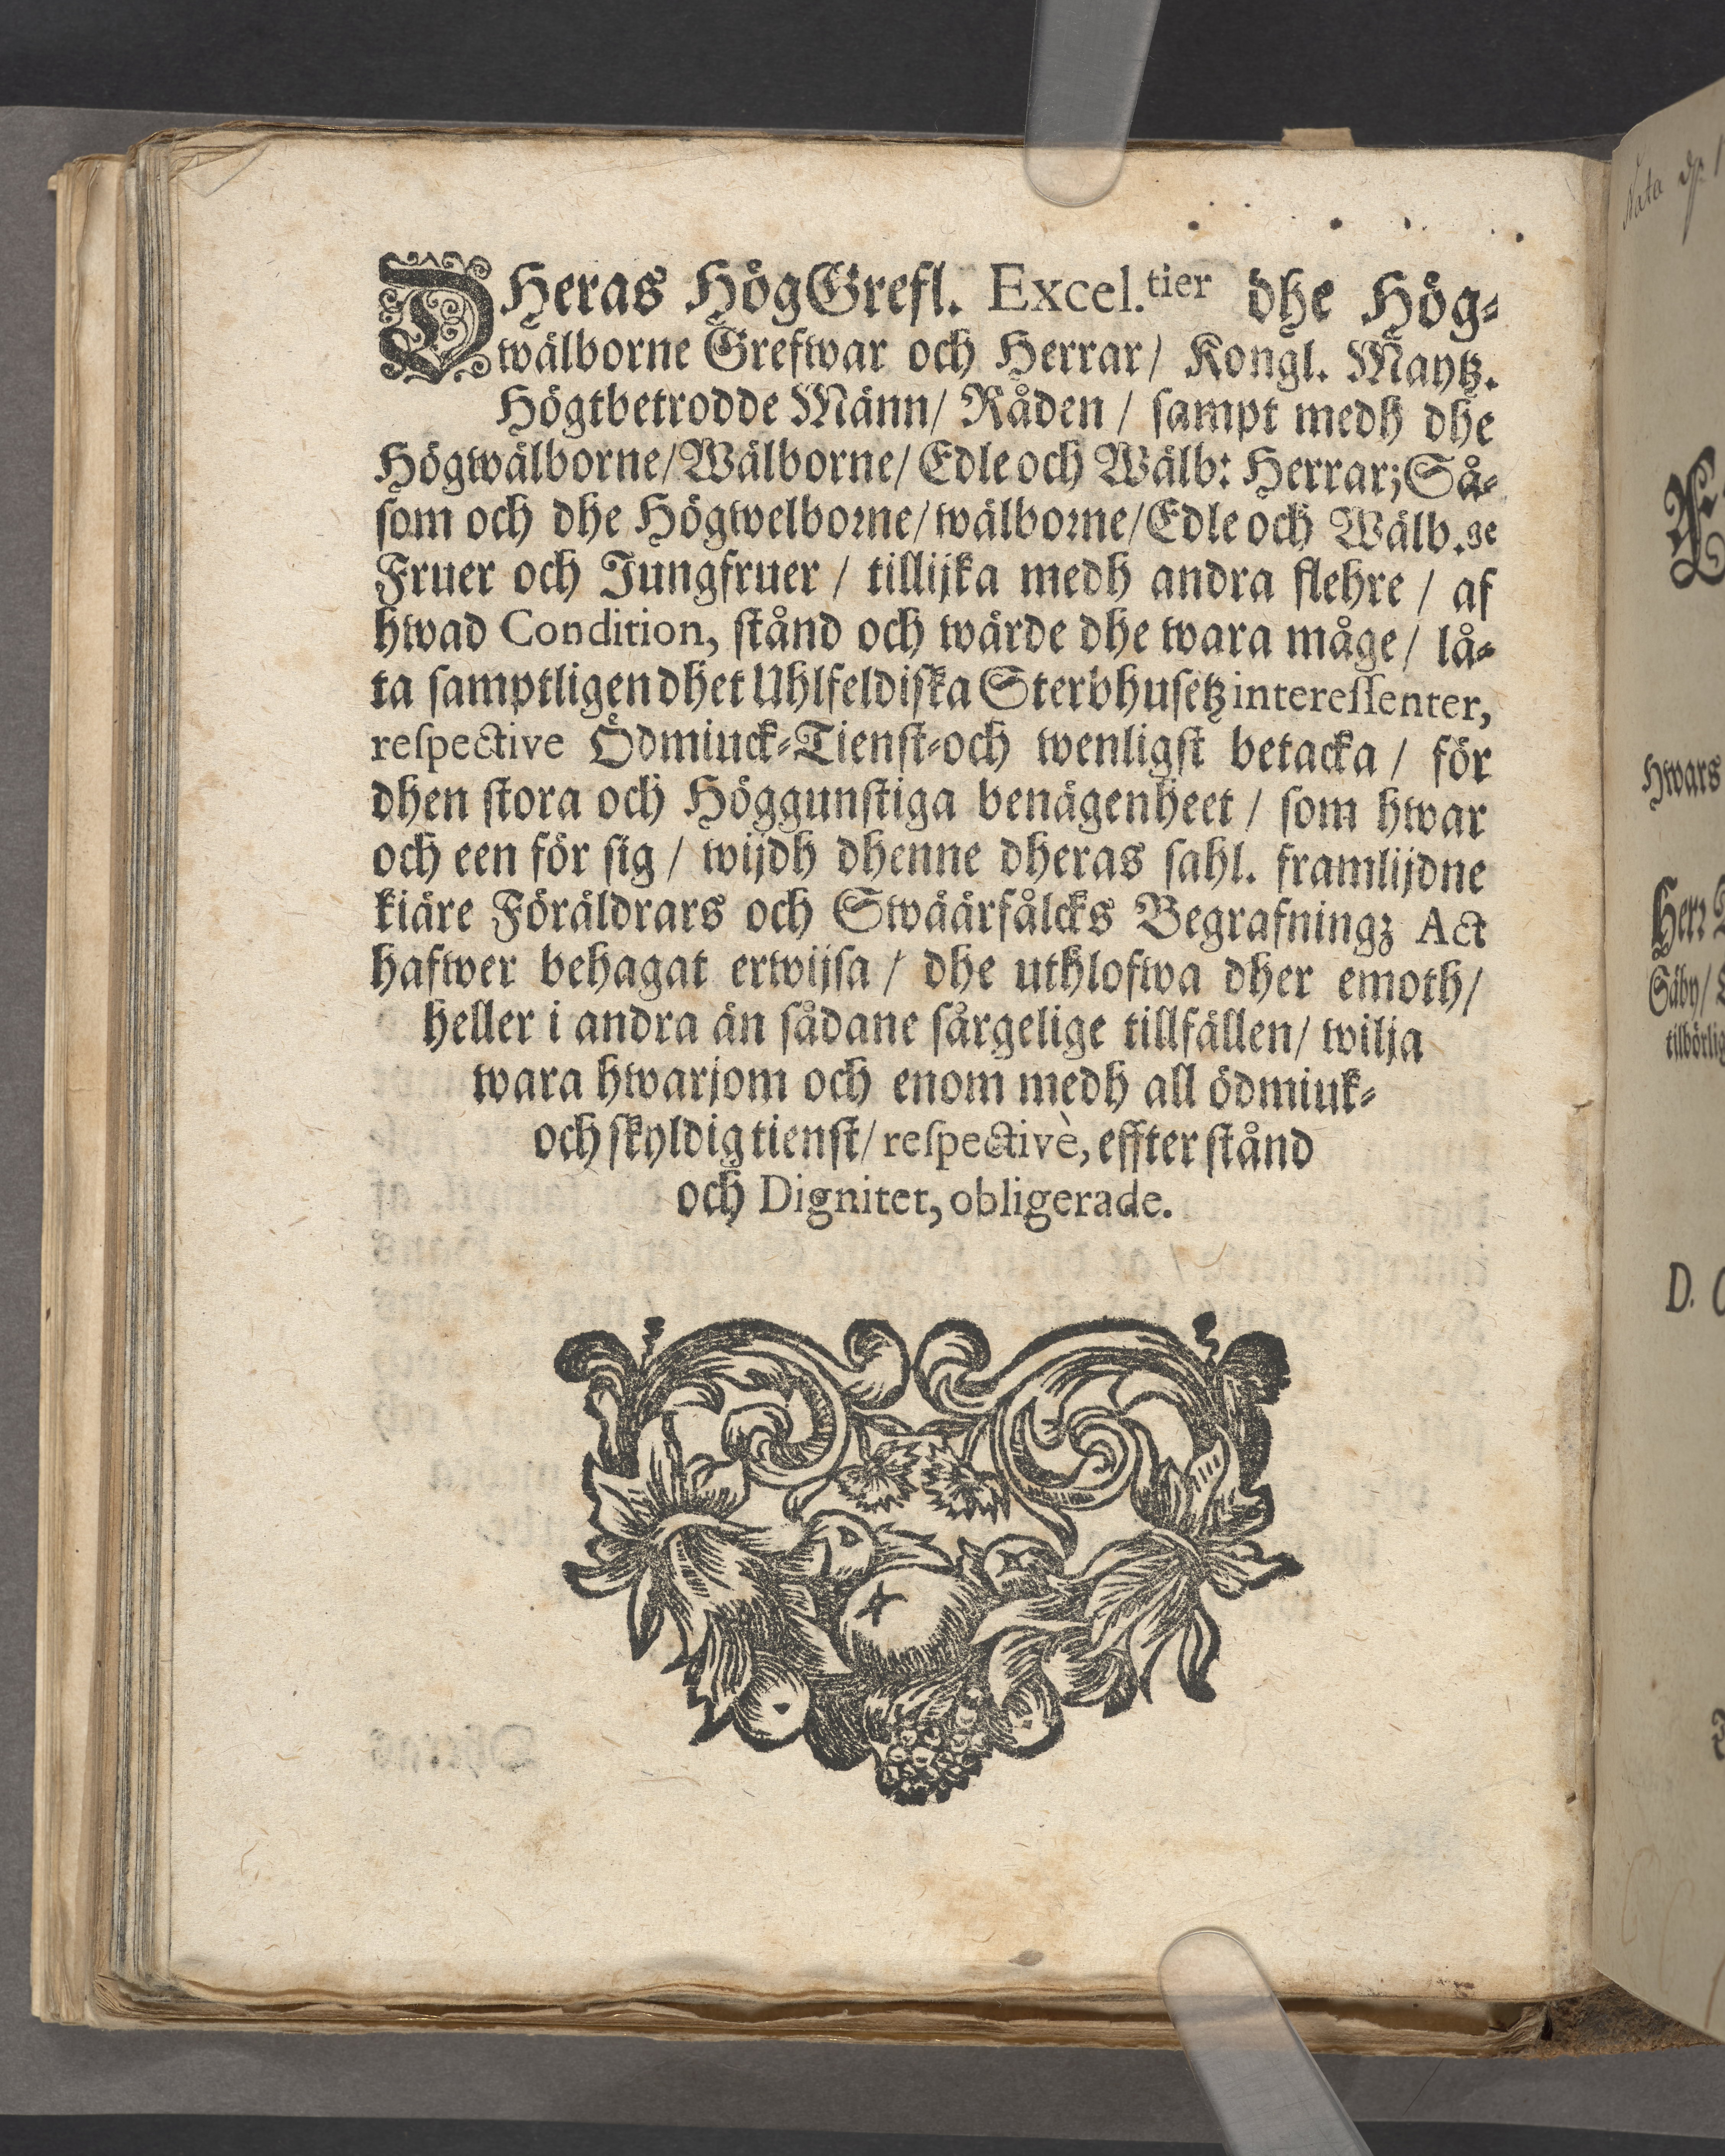 DHeras HögGrefl. Excel.tier dhe Hög-
wälborne Grefwar och Herrar/ Kongl. Maytz.
Högtbetrodde Männ/ Råden / sampt medh dhe
Högwälborne/Wälborne/ Edle och Wälb: Herrar; Så-
som och dhe Högwelborne/wälborne/Edle och Wälb.ge
Fruer och Jungfruer / tillijka medh andra flehre / af
hwad Condition, stånd och wärde dhe wara måge/ lå-
ta samptligen dhet Uhlfeldiska Sterbhusetz interessenter,
respective Ödmiuck-Tienst-och wenligst betacka / för
dhen stora och Höggunstiga benägenheet / som hwar
och een för sig / wijdh dhenne dheras sahl. framlijdne
kiäre Föräldrars och Swäärfålcks Begrafningz Act
hafwer behagat erwijsa / dhe uthlofwa dher emoth/
heller i andra än sådane sårgelige tillfällen/ wilja
wara hwarjom och enom medh all ödmiuk-
och skyldig tienst/ respectivè, effter stånd
och Dignitet, obligerade.
Nata
hwars
Herr
Säby/
tilbörlig
D.